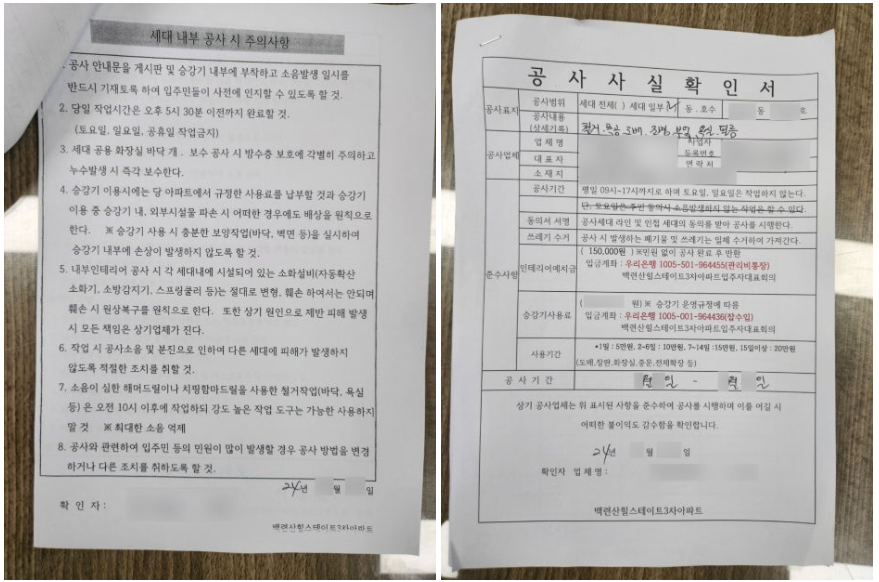 세대 내부 공사 시 주의사항
1. 공사 안내문을 게시판 및 승강기 내부에 부착하고 소음발생 일시를
반드시 기재토록 하여 입주민들이 사전에 인지할 수 있도록 할 것.
2. 당일 작업시간은 오후 5시 30분 이전까지 완료할 것.
(토요일, 일요일, 공휴일 작업금지)
3. 세대 공용 화장실 바닥 개 . 보수 공사 시 방수층 보호에 각별히 주의하고
누수발생 시 즉각 보수한다.
4. 승강기 이용시에는 당 아파트에서 규정한 사용료를 납부할 것과 승강기
이용 중 승강기 내, 외부시설물 파손 시 어떠한 경우에도 배상을 원칙으로
한다. ※ 승강기 사용 시 충분한 보양작업(바닥, 벽면 등)을 실시하여
승강기 내부에 손상이 발생하지 않도록 할 것.
5. 내부인테리어 공사 시 각 세대내에 시설되어 있는 소화설비(자동확산
소화기, 소방감지기, 스프링쿨러 등)는 절대로 변형, 훼손 하여서는 안되며
훼손 시 원상복구를 원칙으로 한다. 또한 상기 원인으로 제반 피해 발생
시 모든 책임은 상기업체가 진다.
6. 작업 시 공사소음 및 분진으로 인하여 다른 세대에 피해가 발생하지
않도록 적절한 조치를 취할 것.
7. 소음이 심한 해머드릴이나 치핑함마드릴을 사용한 철거작업(바닥, 욕실
등) 은 오전 10시 이후에 작업하되 강도 높은 작업 도구는 가능한 사용하지
말 것 ※ 최대한 소음 억제
8. 공사와 관련하여 입주민 등의 민원이 많이 발생할 경우 공사 방법을 변경
하거나 다른 조치를 취하도록 할 것.
24년 월 일
확 인 자 :
백련산힐스테이트3차아파트
공 사 사 실 확 인 서
공사표지
공사범위 세대 전체( ) 세대 일부 동 . 호수 동 호
공사내용
(상세기록) 철거. 목공 도배. 조명. 필름
공사업체
업 체 명 사업자
등록번호
대 표 자 연 락 처
소 재 지
준수사항
공사기간 평일 09시~17시까지로 하며 토요일, 일요일은 작업하지 않는다.
단, 토요일은 주민 동의시 소음발생하지 않는 작업은 할 수 있다.
동의서 서명 공사세대 라인 및 인접 세대의 동의를 받아 공사를 시행한다.
쓰레기 수거 공사 시 발생하는 폐기물 및 쓰레기는 일체 수거하여 가져간다.
인테리어예치금 ( 150,000원) ※민원 없이 공사 완료 후 반환
입금계좌 : 우리은행 1005-501-964455(관리비통장)
백련산힐스테이트3차아파트입주자대표회의
승강기사용료 ( 원) ※ 승강기 운영규정에 따름
입금계좌 : 우리은행 1005-001-964436(잡수입)
백련산힐스테이트3차아파트입주자대표회의
사용기간 *1일 : 5만원, 2~6일 : 10만원, 7~14일 :15만원, 15일이상 : 20만원
(도배,장판,화장실,중문,전체확장 등)
공 사 기 간 월 일 - 월 일
상기 공사업체는 위 표시된 사항을 준수하여 공사를 시행하며 이를 어길 시
어떠한 불이익도 감수함을 확인합니다.
24년 월 일
확인자 업 체 명 :
백련산힐스테이트3차아파트